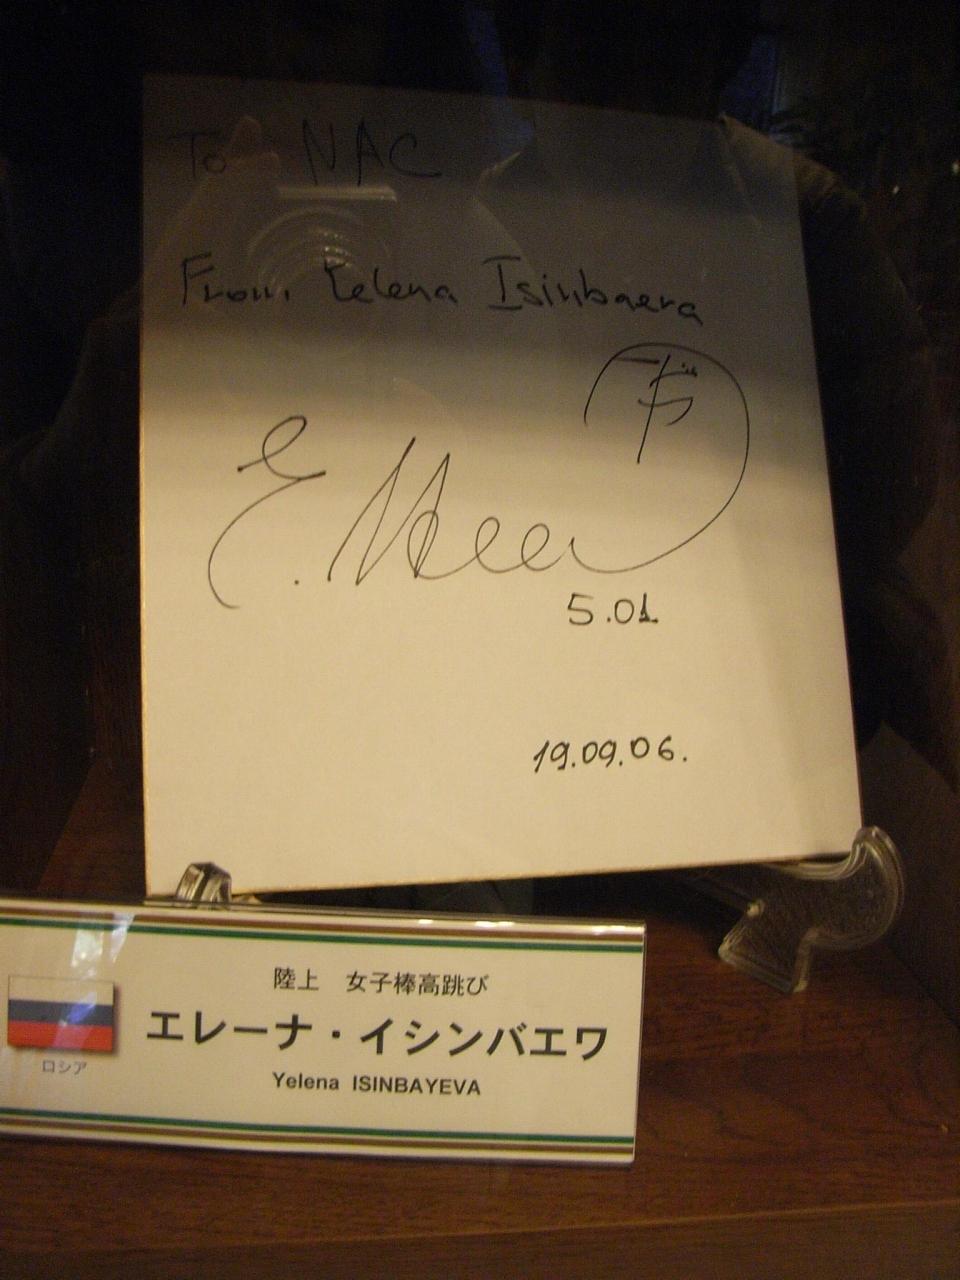 To NAC
From Yelena Isinbaeva
5.01
19.09.06.
陸上 女子棒高跳び
エレーナ・イシンバエワ
ロシア
Yelena ISINBAYEVA